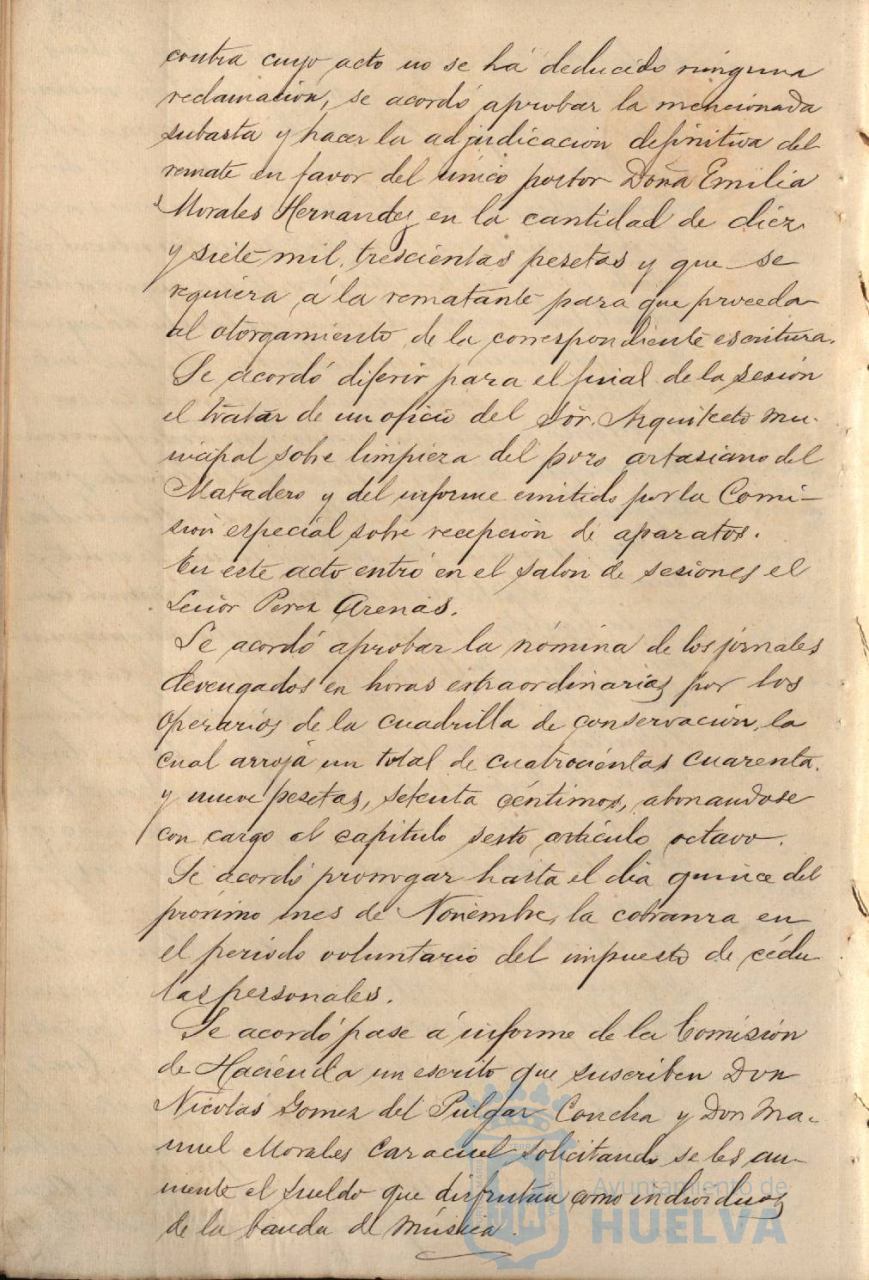 contra cuyo acto no se há deducido ninguna
reclamación, se acordó aprobar la mencionada
subasta y hacer la adjudicación definitiva del
remate en favor del único postor Doña Emilia
Morales Hernandez en la cantidad de diez
y siete mil, trescientas pesetas y que se
requiera á la rematante para que proceda
al otorgamiento de la correspondiente escritura.
Se acordó diferir para el final de la sesión
el tratar de un oficio del Sór. Arquitecto mu-
nicipal sobre limpieza del pozo artesiano del
Matadero y del informe emitido por la Comi-
sión especial sobre recepción de aparatos.
En este acto entró en el salon de sesiones el
Señor Perez Arenas.
Se acordó aprobar la nómina de los jornales
devengados en horas extraordinarias por los
operarios de la cuadrilla de conservación, la
cual arroja un total de cuatrocientas cuarenta
y nueve pesetas, setenta céntimos, abonandose
con cargo al capitulo sesto artículo octavo.
Se acordó prorrogar hasta el dia quince del
próximo mes de Noviembre, la cobranza en
el periodo voluntario del impuesto de cédu
las personales.
Se acordó pase á informe de la Comisión
de Hacienda un escrito que suscriben Don
Nicolás Gomez del Pulgar Concha y Don Ma-
nuel Morales Caracuel solicitando se les au-
mente el sueldo que disfrutan como individuos
de la banda de Música.
Ayuntamiento de
HUELVA